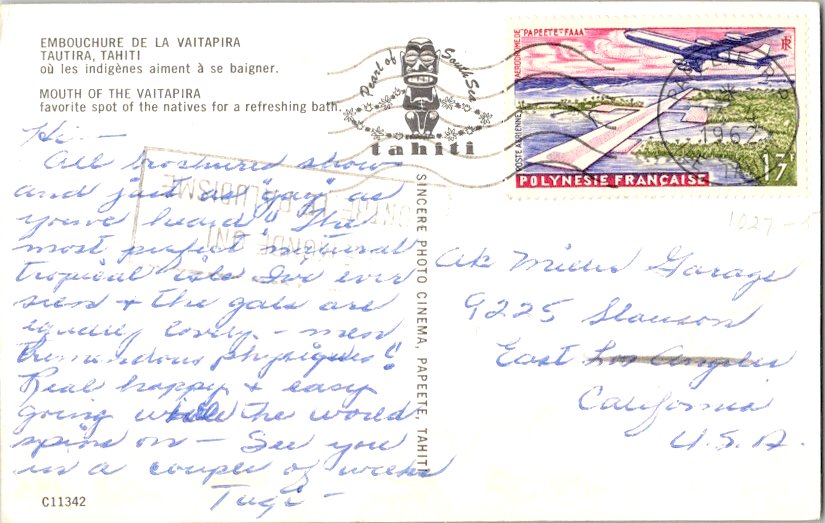 EMBOUCHURE DE LA VAITAPIRA
TAUTIRA, TAHITI
où les indigènes aiment à se baigner.
MOUTH OF THE VAITAPIRA
favorite spot of the natives for a refreshing bath.
Hi. —
All brochures show
and just as "gay" as
you've heard! The
most perfect natural
tropical isle I've ever
seen + the gals are
equally lovely — men
tremendous physiques!
Real happy + easy
going while the world
spins on — See you
in a couple of weeks
C11342
SINCERE PHOTO CINEMA, PAPEETE, TAHITI
Pearl of South Sea
tahiti
AÉRODROME DE PAPEETE-FAAA
RF
POSTE AÉRIENNE
POLYNESIE FRANÇAISE
13F
1962
LE MONDE UNI
CONTRE LE PALUDISME
1027-5
Garage
9225 Slauson
East Los Angeles
California
U.S.A.